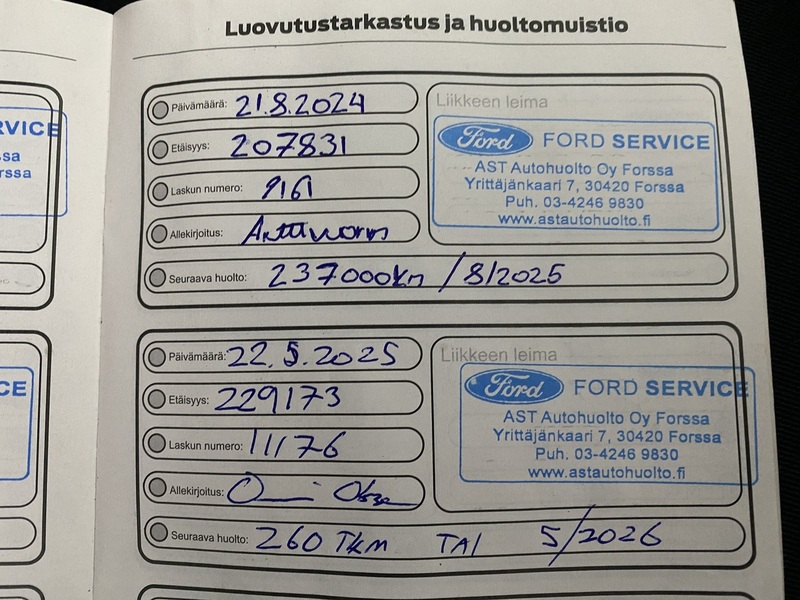 Luovutustarkastus ja huoltomuistio
RVICE
sa
rssa
CE
Päivämäärä: 21.8.2024
Etäisyys: 207831
Laskun numero: 9161
Allekirjoitus:
Seuraava huolto: 237000km / 8/2025
Liikkeen leima
Ford FORD SERVICE
AST Autohuolto Oy Forssa
Yrittäjänkaari 7, 30420 Forssa
Puh. 03-4246 9830
www.astautohuolto.fi
Päivämäärä: 22.5.2025
Etäisyys: 229173
Laskun numero: 11176
Allekirjoitus:
Seuraava huolto: 260 TKM TAI 5/2026
Liikkeen leima
Ford FORD SERVICE
AST Autohuolto Oy Forssa
Yrittäjänkaari 7, 30420 Forssa
Puh. 03-4246 9830
www.astautohuolto.fi